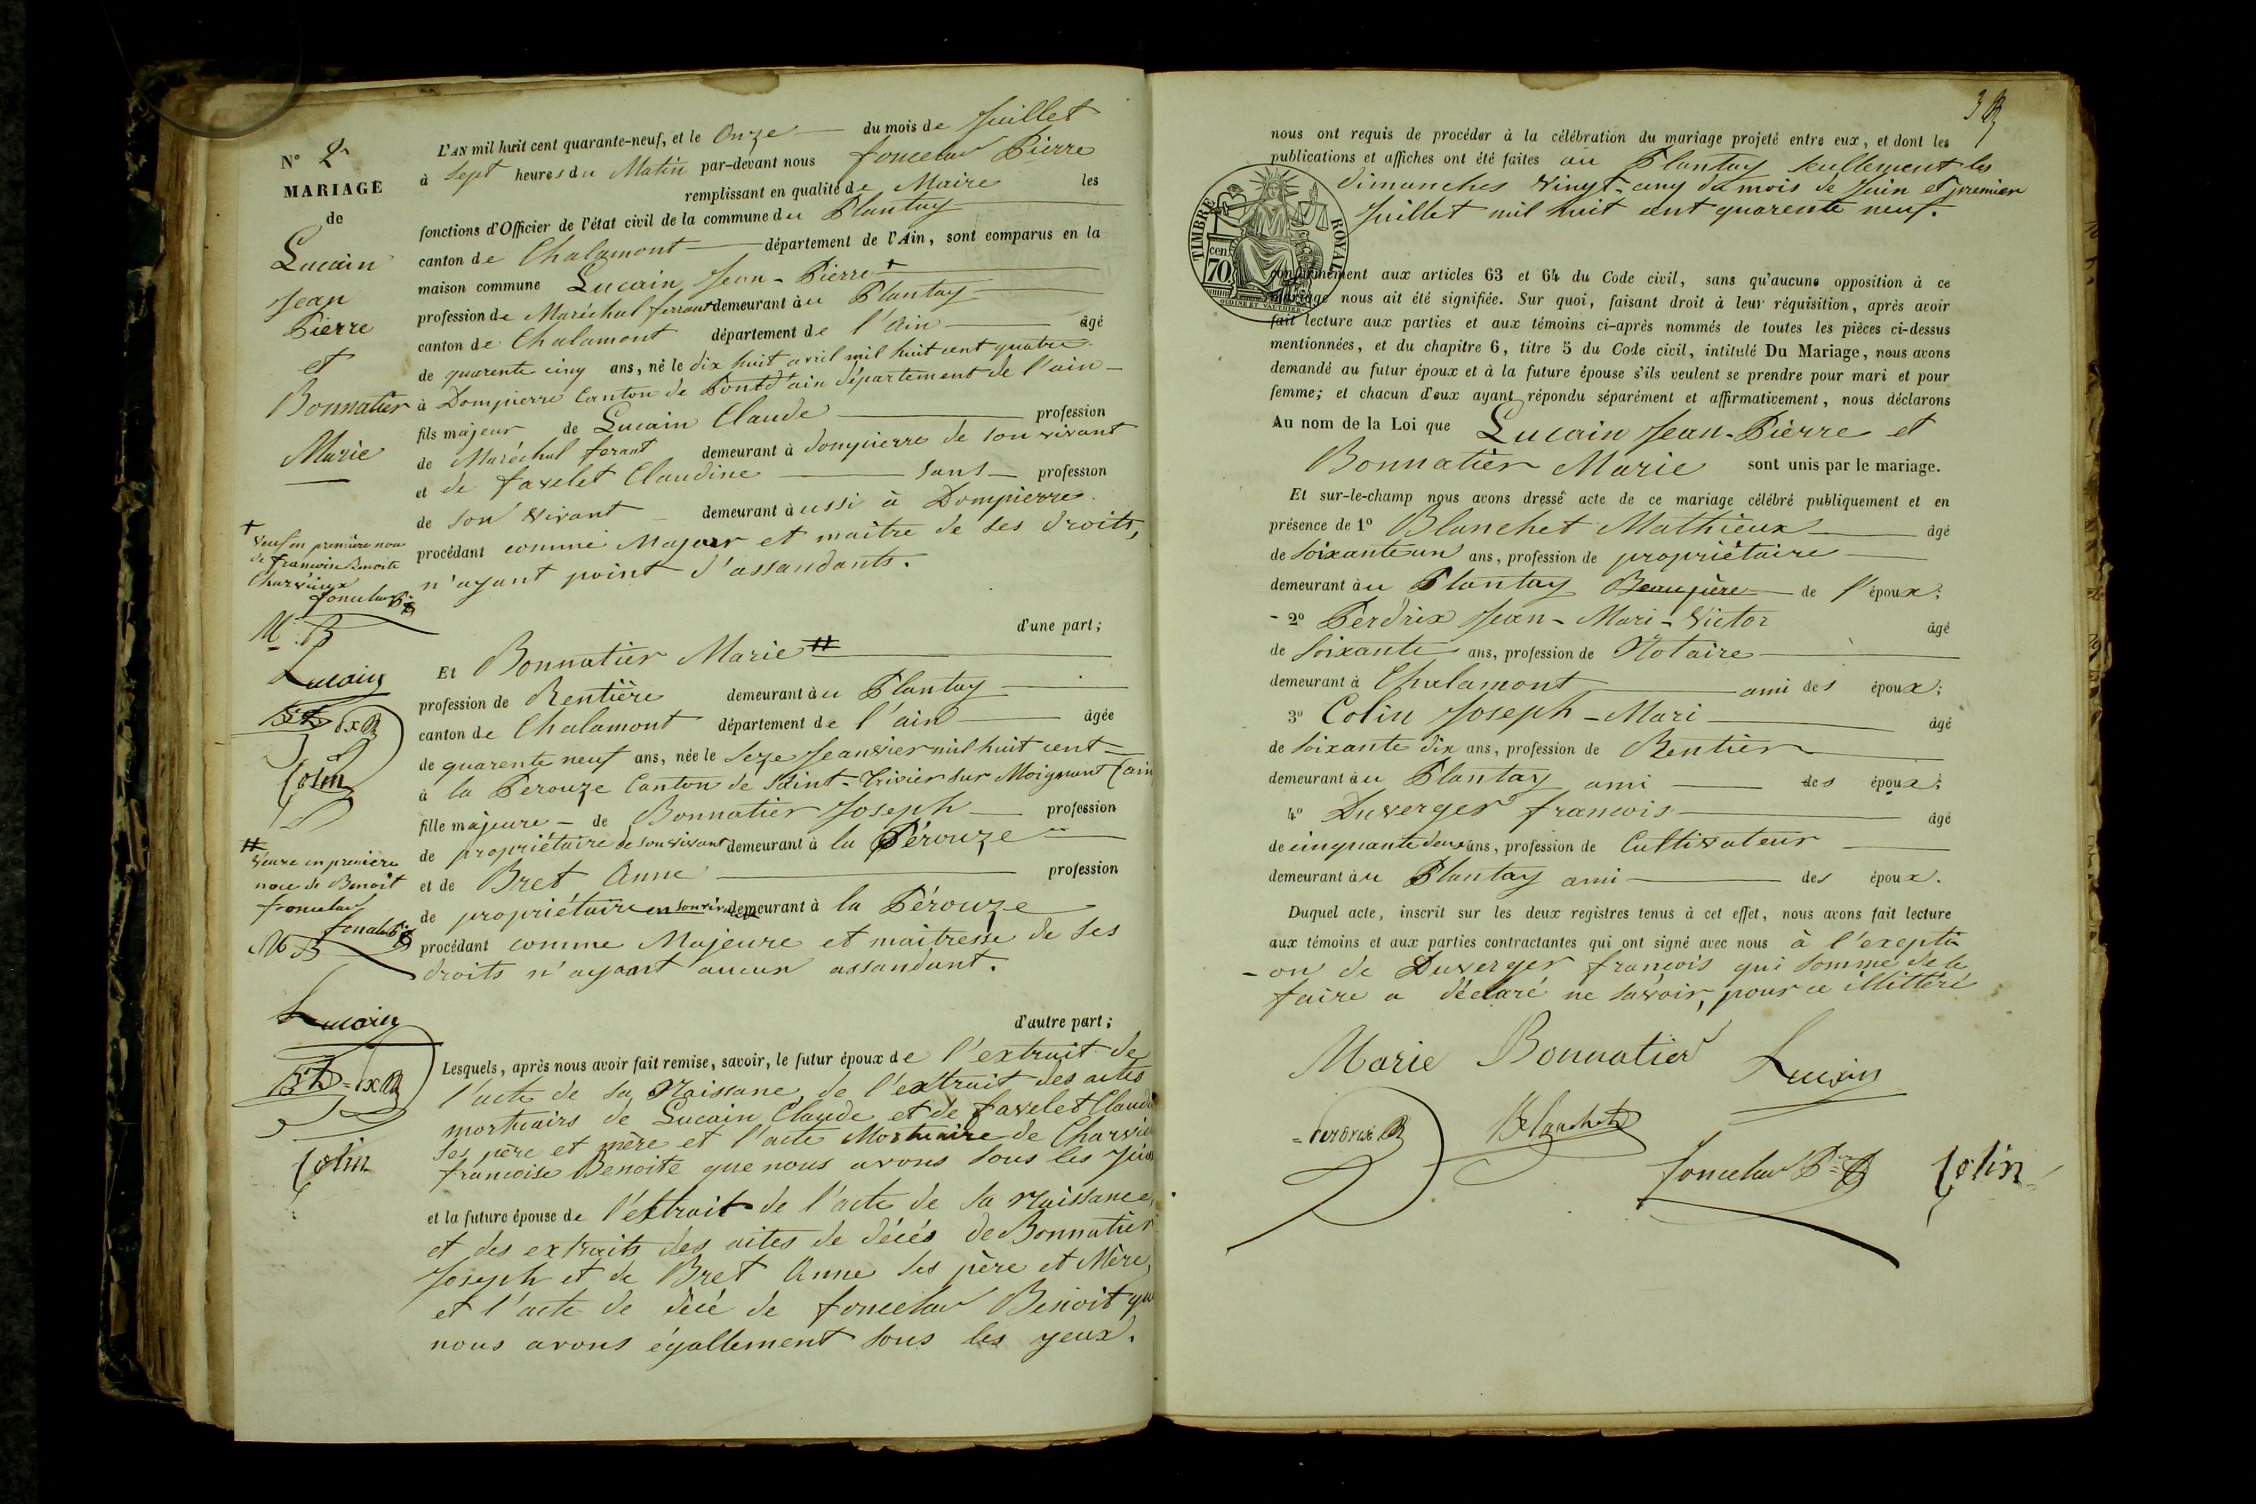 N° 2
MARIAGE
de
Lucain
Jean
Pierre
et
Bonnatier
Marie
+
veuf en première noce
de francoise Benoite
Charvieux
fonclau Pre
Lucain
Colin
#
veuve en première
noce de Benoit
fonclau
Lucain
Colin
L'AN mil huit cent quarante-neuf, et le Onze du mois de Juillet
à Sept heures du Matin par-devant nous foncelau Pierre
remplissant en qualité de Maire les
fonctions d'Officier de l'état civil de la commune du Plantay
canton de Chalamont département de l'Ain, sont comparus en la
maison commune Lucain Jean-Pierre +
profession de Maréchal ferrant demeurant àu Plantay
canton de Chalamont département de l'ain âgé
de quarente cinq ans, né le dix huit avril mil huit cent quatre
à Dompierre Canton de Pontd'ain département de l'ain
fils majeur de Lucain Claude profession
de Maréchal ferant demeurant à dompierre de son vivant
et de favelet Claudine sans profession
de son vivant demeurant àussi à Dompierre
procédant comme Majeur et maitre de ses droits,
n'ayant point d'assandants.
d'une part;
Et Bonnatier Marie #
profession de Rentière demeurant àu Plantay
canton de Chalamont département de l'ain âgée
de quarente neuf ans, née le Seze Jeanvier mil huit cent
à la Perouze Canton de Saint-Trivier sur Moignant (ain
fille majeure de Bonnatier Joseph profession
de propriétaire de son vivant demeurant à la Pérouze
et de Bret Anne profession
de propriétaire en son vivant demeurant à la Pérouze
procédant comme Majeure et maitresse de ses
droits n'ayant aucun assandant.
d'autre part;
Lesquels, après nous avoir fait remise, savoir, le futur époux de l'extrait de
l'acte de sa Naissance, de l'extrait des actes
mortuairs de Lucain Claude et de favelet Claudi
ses père et mère et l'acte Mortuaire de Charvie
francoise Benoite que nous avons sous les yeux
et la future épouse de l'extrait de l'acte de sa Naissance,
et des extraits des actes de décés de Bonnatier
Joseph et de Bret Anne ses père et Mère,
et l'acte de décé de foncelau Benoit que
nous avons égallement sous les yeux.
3
nous ont requis de procéder à la célébration du mariage projeté entre eux, et dont les
publications et affiches ont été faites au Plantay seullement les
dimanches vingt-cinq du mois de Juin et premier
Juillet mil huit cent quarente neuf.
TIMBRE ROYAL
70 cen.
OUDINE ET VAUTHIER
conformément aux articles 63 et 64 du Code civil, sans qu'aucune opposition à ce
mariage nous ait été signifiée. Sur quoi, faisant droit à leur réquisition, après avoir
fait lecture aux parties et aux témoins ci-après nommés de toutes les pièces ci-dessus
mentionnées, et du chapitre 6, titre 5 du Code civil, intitulé Du Mariage, nous avons
demandé au futur époux et à la future épouse s'ils veulent se prendre pour mari et pour
femme; et chacun d'eux ayant répondu séparément et affirmativement, nous déclarons
Au nom de la Loi que Lucain Jean-Pierre et
Bonnatier Marie sont unis par le mariage.
Et sur-le-champ nous avons dressé acte de ce mariage célébré publiquement et en
présence de 1° Blanchet Mathieux âgé
de soixante un ans, profession de propriétaire
demeurant àu Plantay Beaupère de l'époux;
- 2° Perdrix Jean-Mari-Victor âgé
de soixante ans, profession de Notaire
demeurant à Chalamont ami des époux;
3° Colin Joseph-Mari âgé
de soixante dix ans, profession de Rentier
demeurant àu Plantay ami des époux;
4° Duverger francois âgé
de cinquante deux ans, profession de Cultivateur
demeurant àu Plantay ami des époux.
Duquel acte, inscrit sur les deux registres tenus à cet effet, nous avons fait lecture
aux témoins et aux parties contractantes qui ont signé avec nous à l'excepti
-on de Duverger francois qui sommé de le
faire a déclaré ne savoir, pour ce illittéré
Marie Bonnatier Lucain
perdrix Blanchet
foncelau Pre Colin